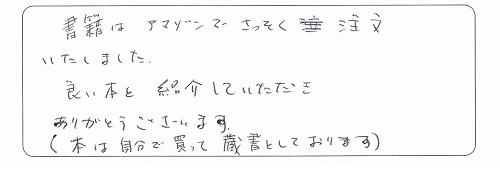 書籍は アマゾンで さっそく 注文
いたしました.
良い本を 紹介していただき
ありがとうございます.
(本は自分で買って 蔵書としております)